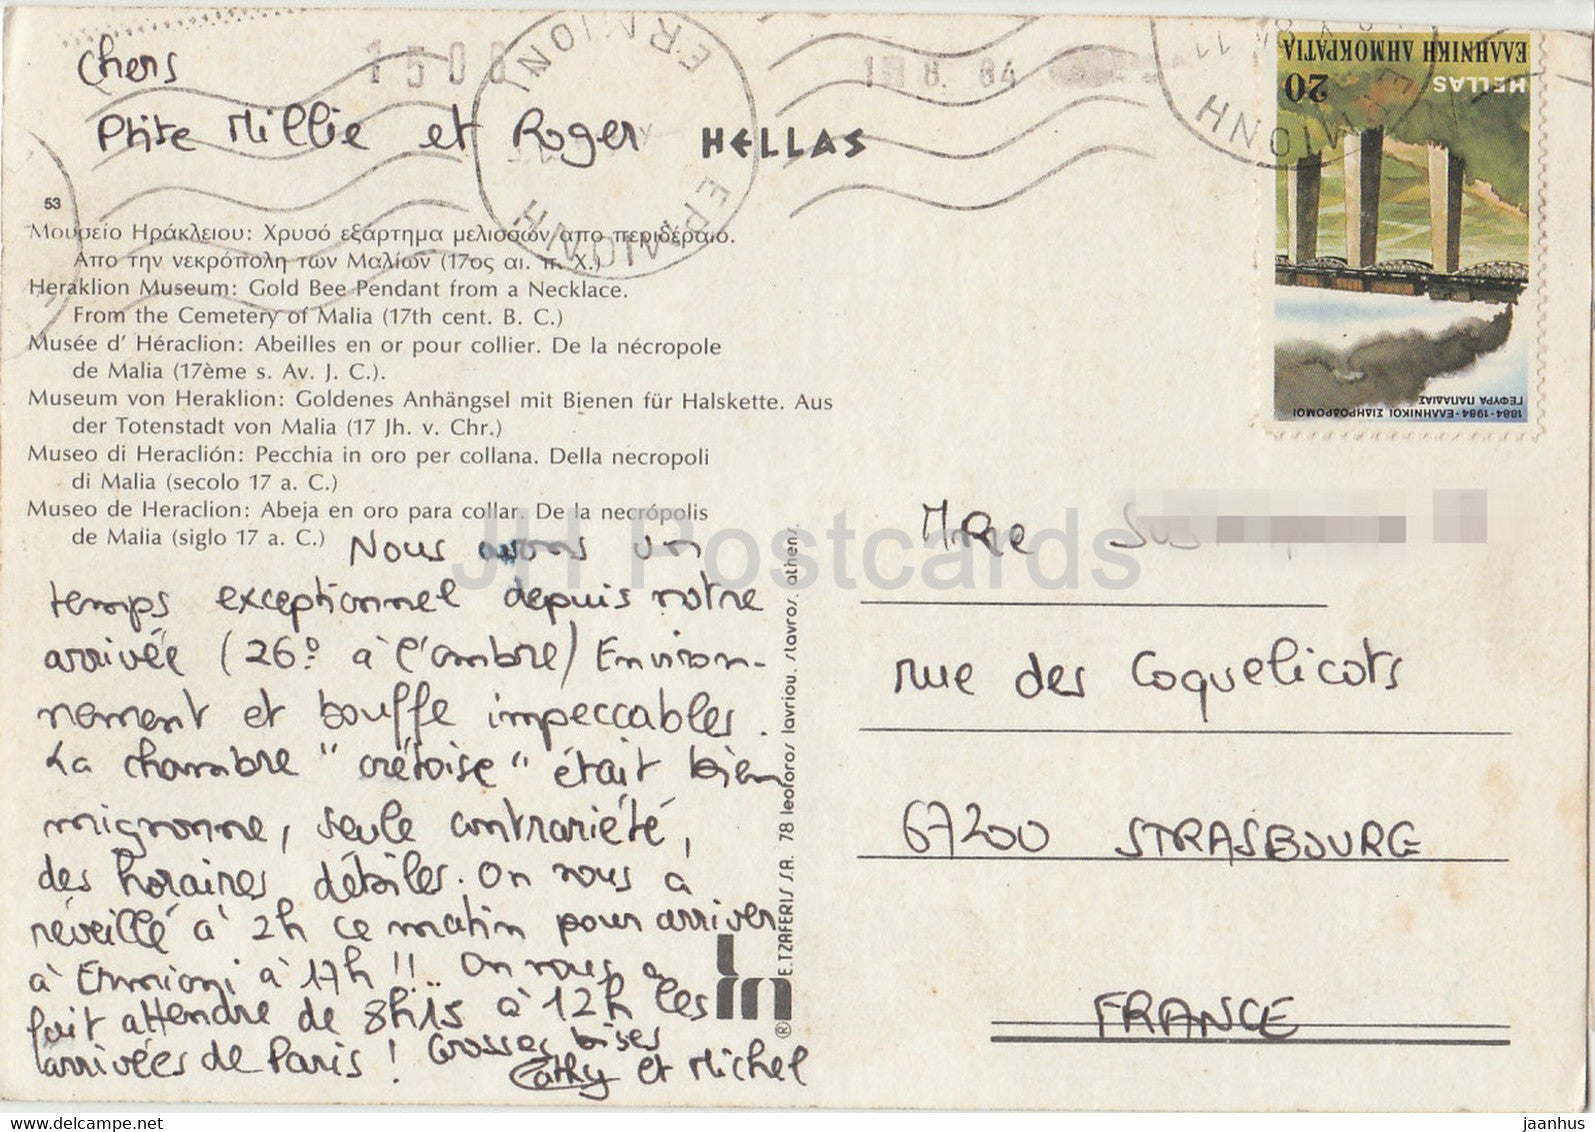 Chers
Ptite Millie et Roger
HELLAS
1500
ERMIONI
ΕΡΜΙΟΝΗ
8. 84
ΕΡΜΙΟΝΗ
ΕΛΛΗΝΙΚΗ ΔΗΜΟΚΡΑΤΙΑ
HELLAS
20
1884-1984-ΕΛΛΗΝΙΚΟΙ ΣΙΔΗΡΟΔΡΟΜΟΙ
ΓΕΦΥΡΑ ΠΑΠΑΔΙΑΣ
53
Μουσείο Ηράκλειου: Χρυσό εξάρτημα μελισσών απο περιδέραιο.
Απο την νεκρόπολη των Μαλίων (17ος αι. π. Χ.)
Heraklion Museum: Gold Bee Pendant from a Necklace.
From the Cemetery of Malia (17th cent. B. C.)
Musée d' Héraclion: Abeilles en or pour collier. De la nécropole
de Malia (17ème s. Av. J. C.).
Museum von Heraklion: Goldenes Anhängsel mit Bienen für Halskette. Aus
der Totenstadt von Malia (17 Jh. v. Chr.)
Museo di Heraclión: Pecchia in oro per collana. Della necropoli
di Malia (secolo 17 a. C.)
Museo de Heraclion: Abeja en oro para collar. De la necrópolis
de Malia (siglo 17 a. C.)
Nous avons un
temps exceptionnel depuis notre
arrivée (26° à l'ombre) Environ-
nement et bouffe impeccables.
La chambre "crétoise" était bien
mignonne, seule contrariété,
des horaires débiles. On nous a
réveillé à 2h ce matin pour arriver
à Ermioni à 17h !! On nous a
fait attendre de 8h15 à 12h les
arrivées de Paris ! Grosses bises
Cathy et Michel
E. TZAFERIS S.A. 78 leoforos lavriou. stavros. athens.
®
JH Postcards
Mme
rue des Coquelicots
67200 STRASBOURG
FRANCE
www.hippostcard.com
jaanhus